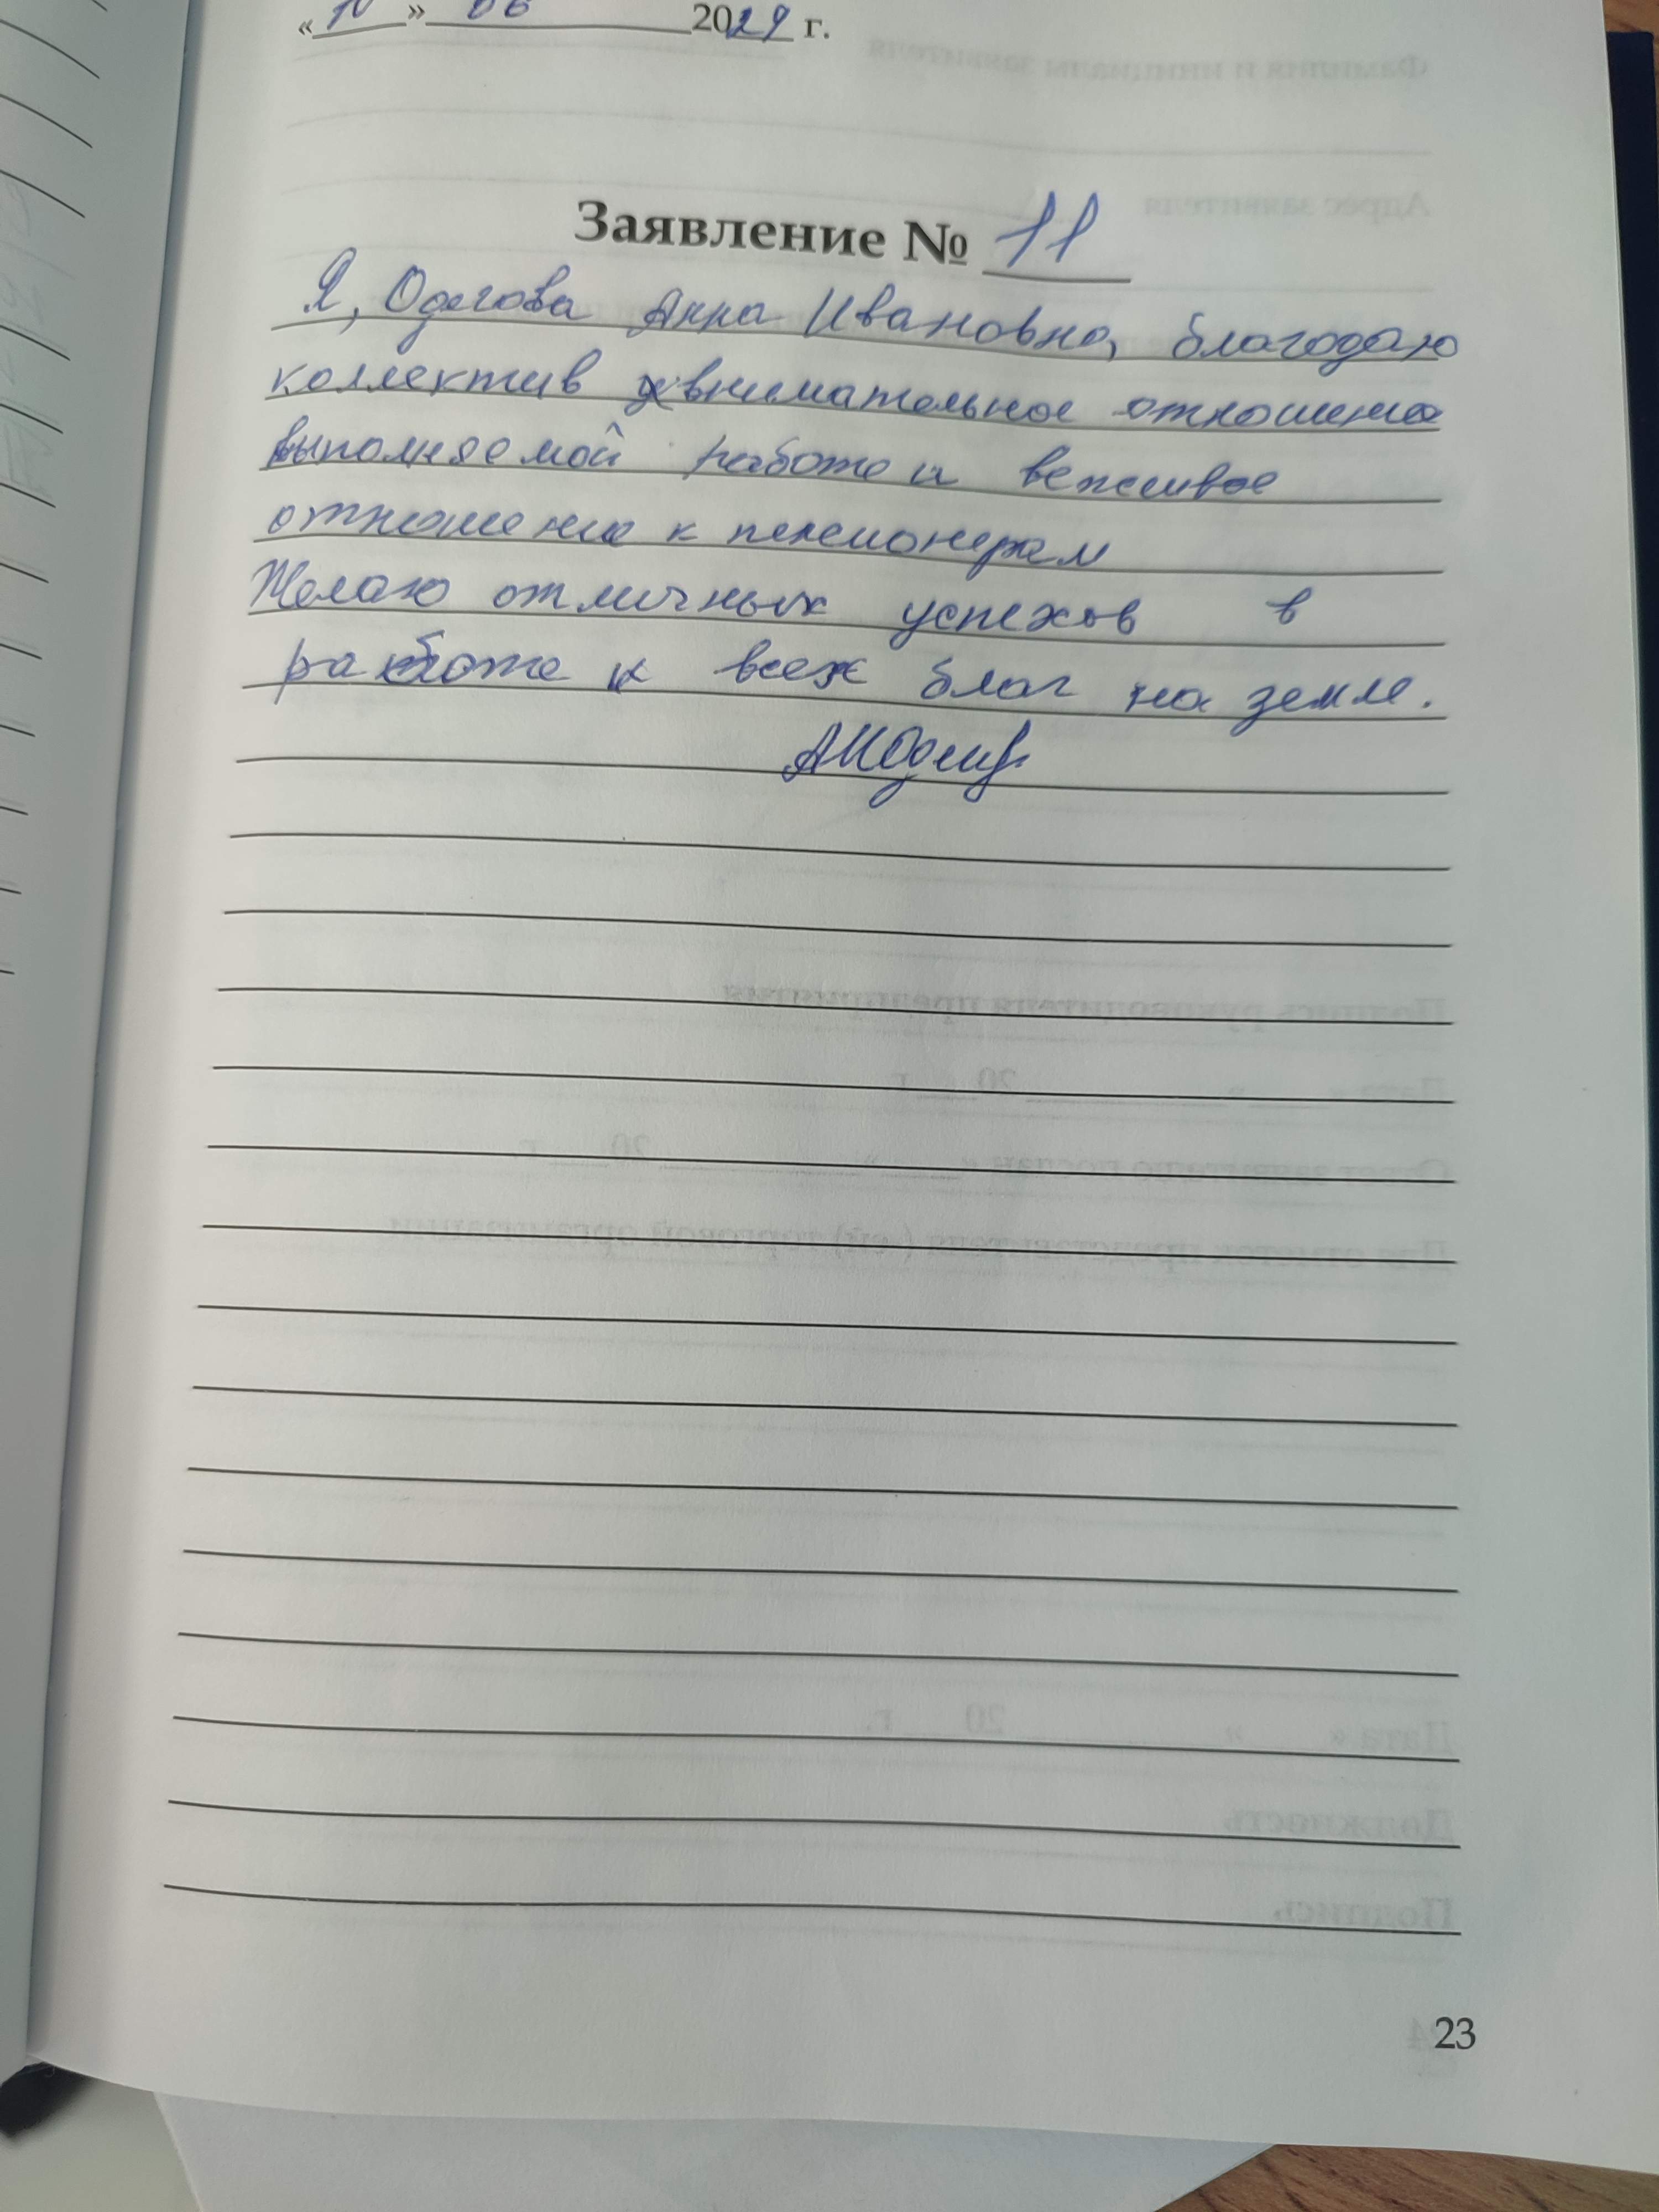 «10» 06 2024 г.
Заявление № 11
Я, Одегова Анна Ивановна, благодаю
коллектив внимательное отношение
выполняемой работе и вежливое
отношение к пенсионерам
Желаю отличных успехов в
работе и всех благ на земле.
23